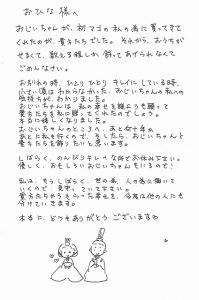 おひな様へ
おじいちゃんが、初マゴの私の為に買ってきて
くれたのが、貴方たちでした。それから、おうちが
せまくて、数える程しか飾ってあげられなくて
ごめんなさい。
お別れの時、ひとりひとりキレイにしている時、
小さい頃はわからなかった、おじいちゃんの私への
気持ちが、わかりました。
おじいちゃんは、私の幸せを誰よりも願って
貴方たちを私に贈ってくれたのでしょう。
本当に嬉しくなりました。
おじいちゃんのところへ、あと何十年か
あとに私も行くので、そしたら、おじいちゃんと
貴方たちを飾りたいと思います。
しばらく、のんびりキレイな所でお休み下さい。
優しく、おもしろいおじいちゃんもいるので!
私は、もうしばらく、世の為、人の為に働いて
いくので、見守っていて下さい。
貴方たちからもらった幸せを、今度は他の人にも
分けていきます。
本当に、どうもありがとうございます